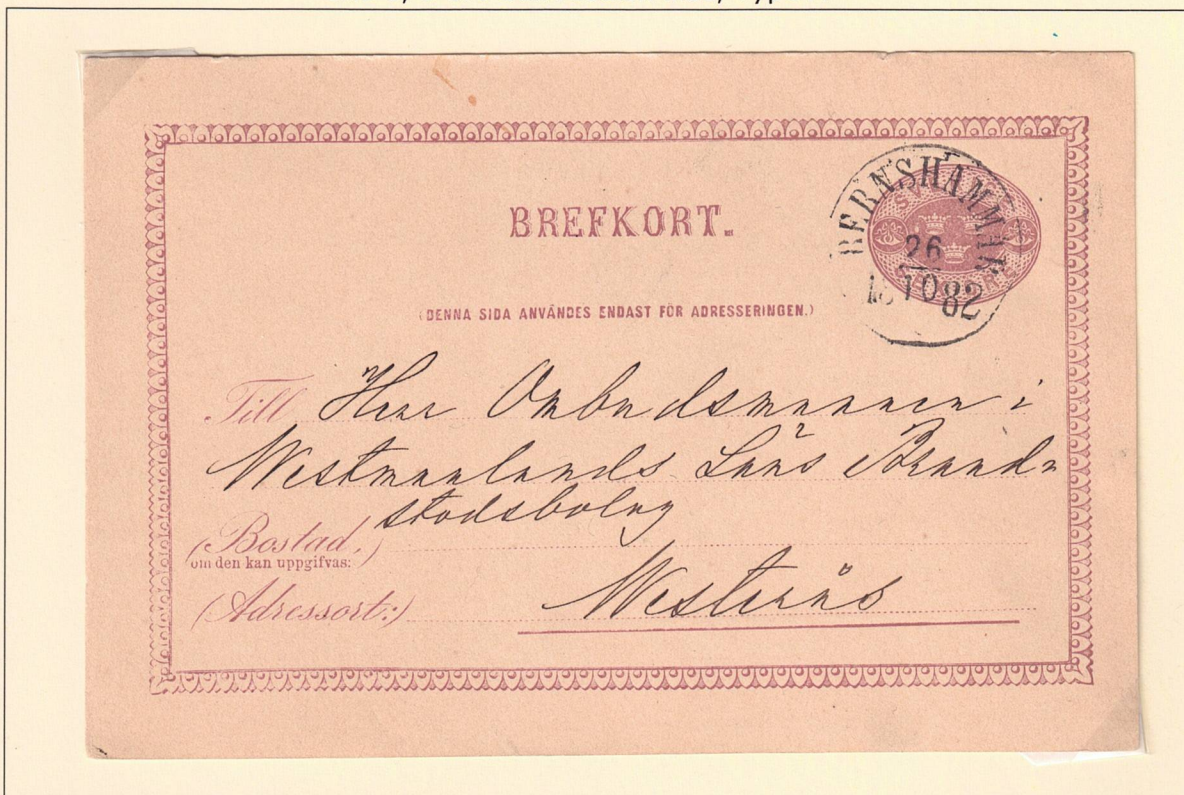 BREFKORT.
BERNSHAMMAR
26
10 82
(DENNA SIDA ANVÄNDES ENDAST FÖR ADRESSERINGEN.)
Till Herr Ombudsmannen i
Westmanlands Läns Brand-
stodsbolag
(Bostad,)
om den kan uppgifvas:
(Adressort:) Westerås